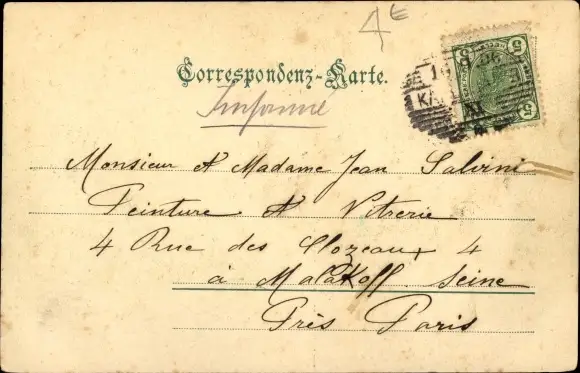 4 €
Correspondenz-Karte.
Monsieur et Madame Jean Salvini
Peinture et Vitrerie
4 Rue des Clozeaux 4
à Malakoff Seine
Près Paris
5 5
5
XI